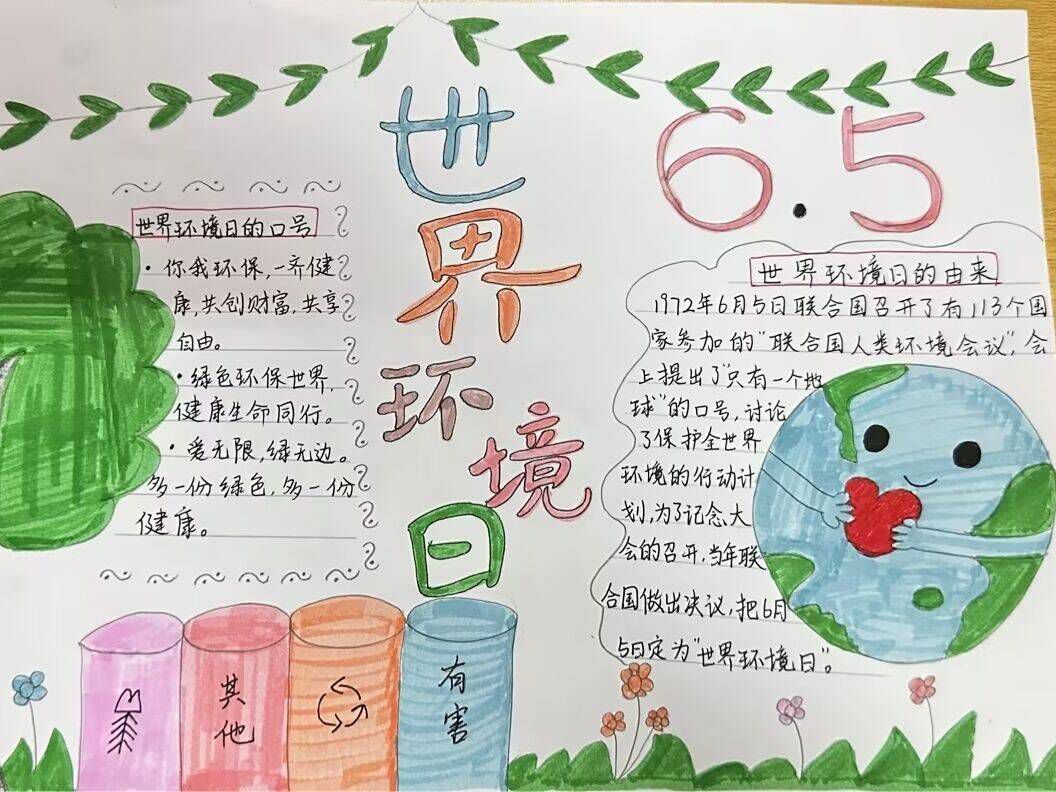 世界环境日
6.5
世界环境日的口号
·你我环保,一齐健
康,共创财富,共享
自由。
·绿色环保世界,
健康生命同行。
·爱无限,绿无边。
多一份绿色,多一份
健康。
世界环境日的由来
1972年6月5日联合国召开了有113个国
家参加的“联合国人类环境会议”,会
上提出了“只有一个地
球”的口号,讨论
了保护全世界
环境的行动计
划,为了记念大
会的召开,当年联
合国做出决议,把6月
5日定为“世界环境日”。
其他
有害